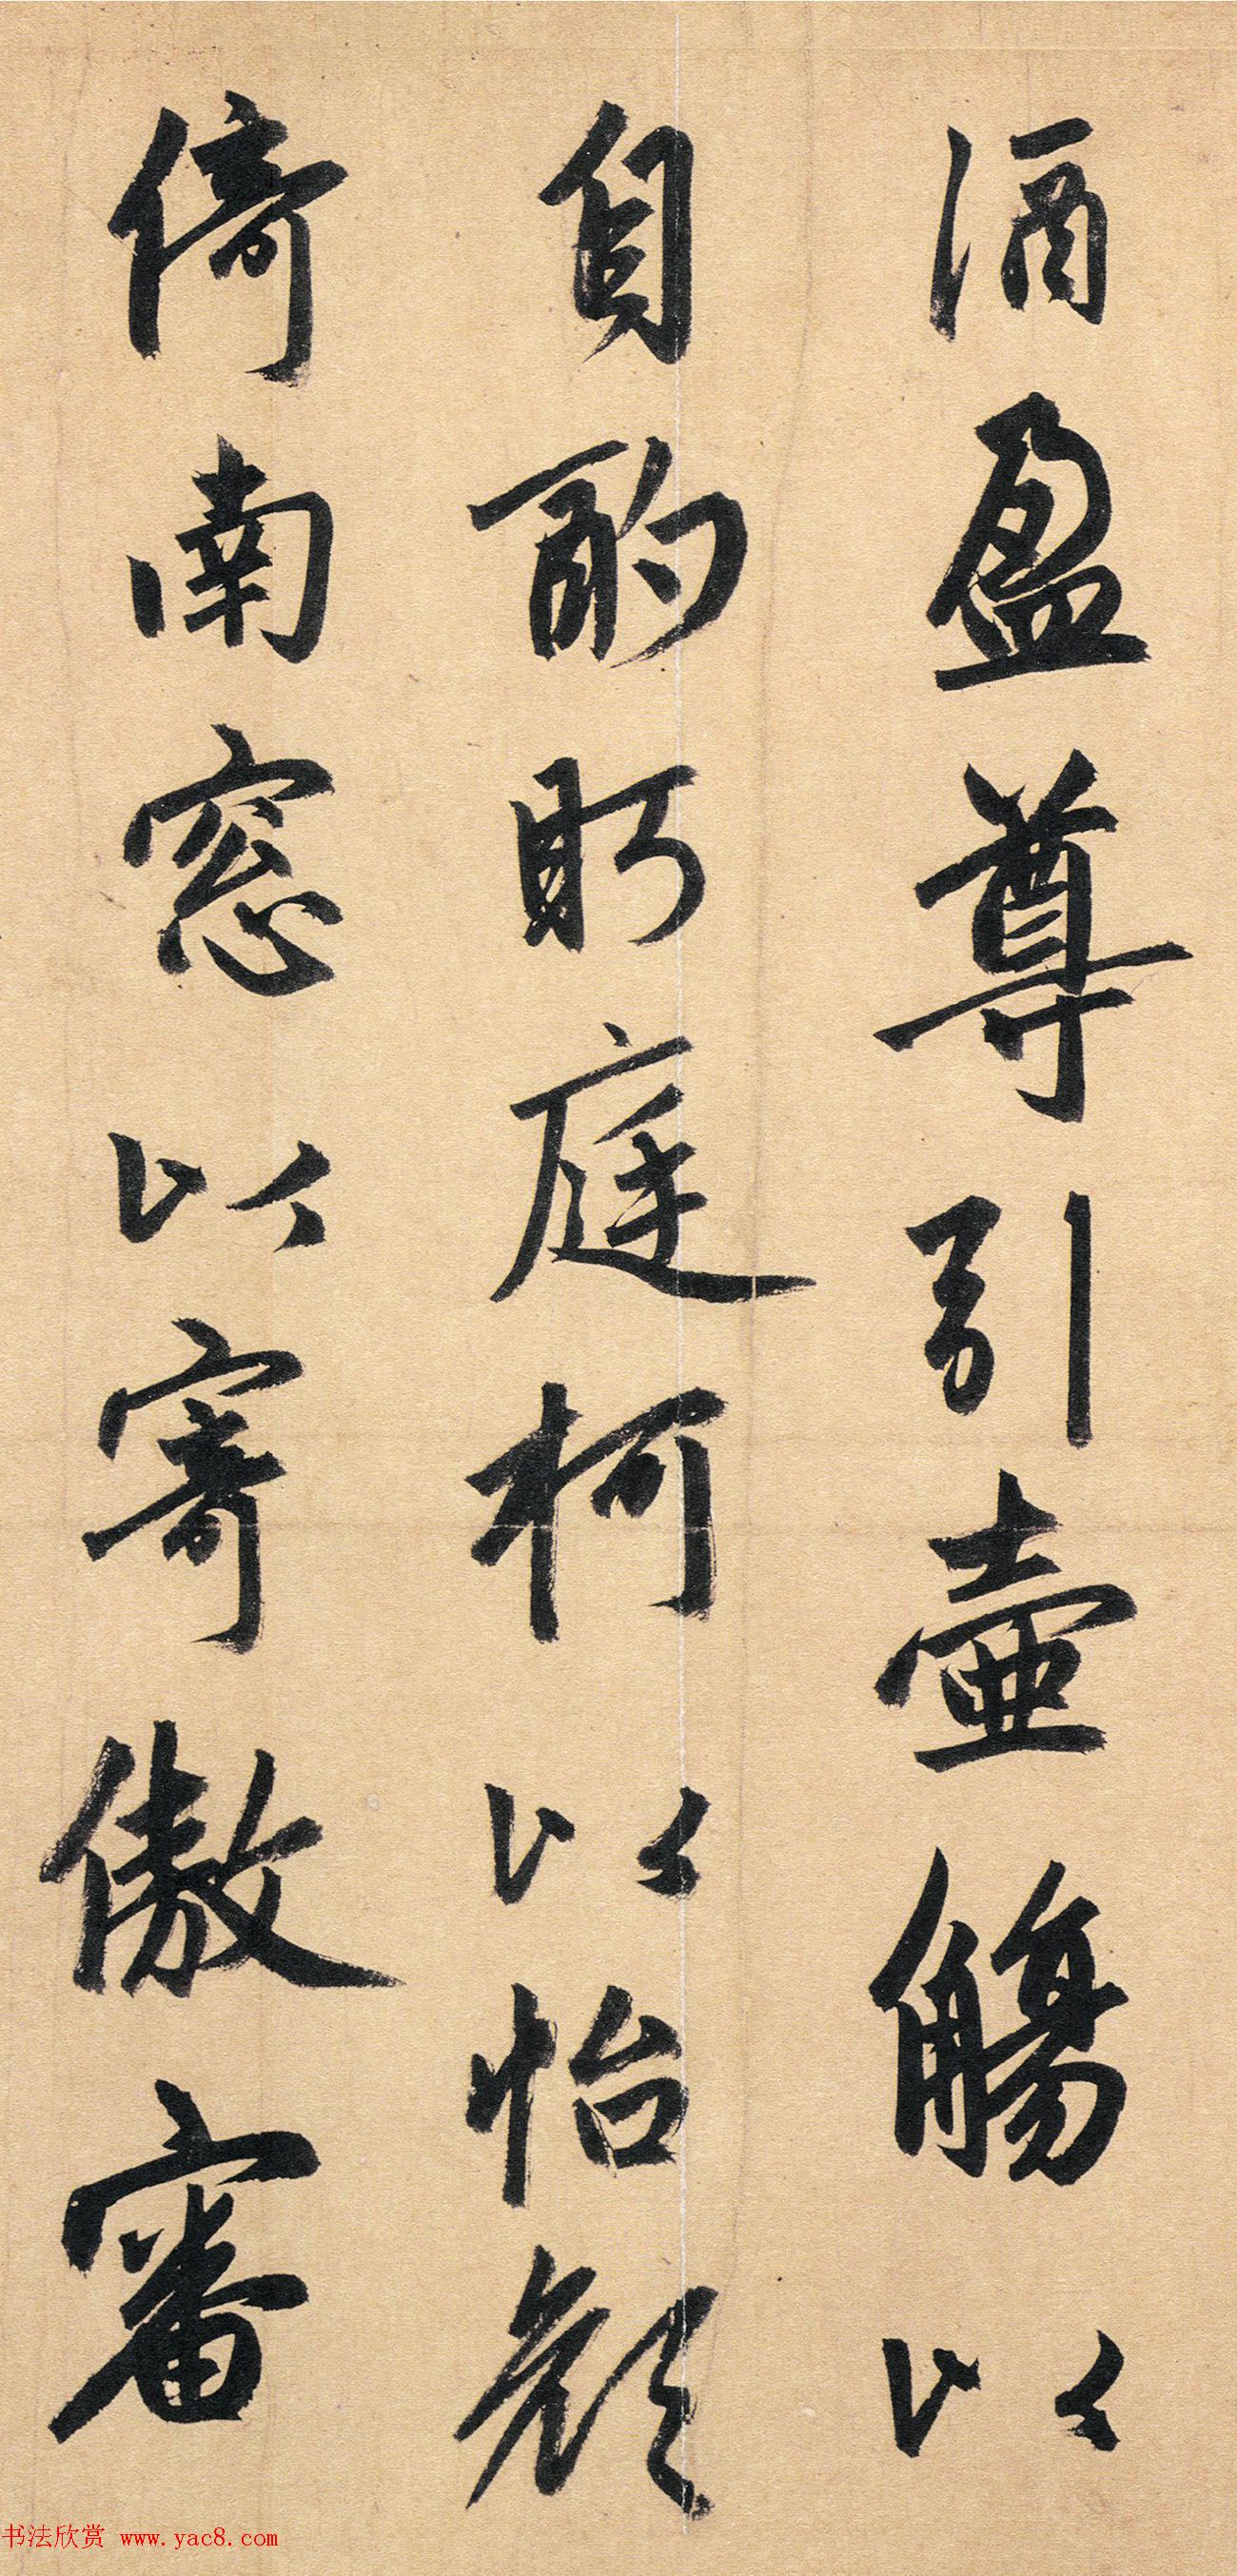 酒盈尊引壷觴以
自酌眄庭柯以怡顔
倚南窓以寄傲審
书法欣赏 www.yac8.com